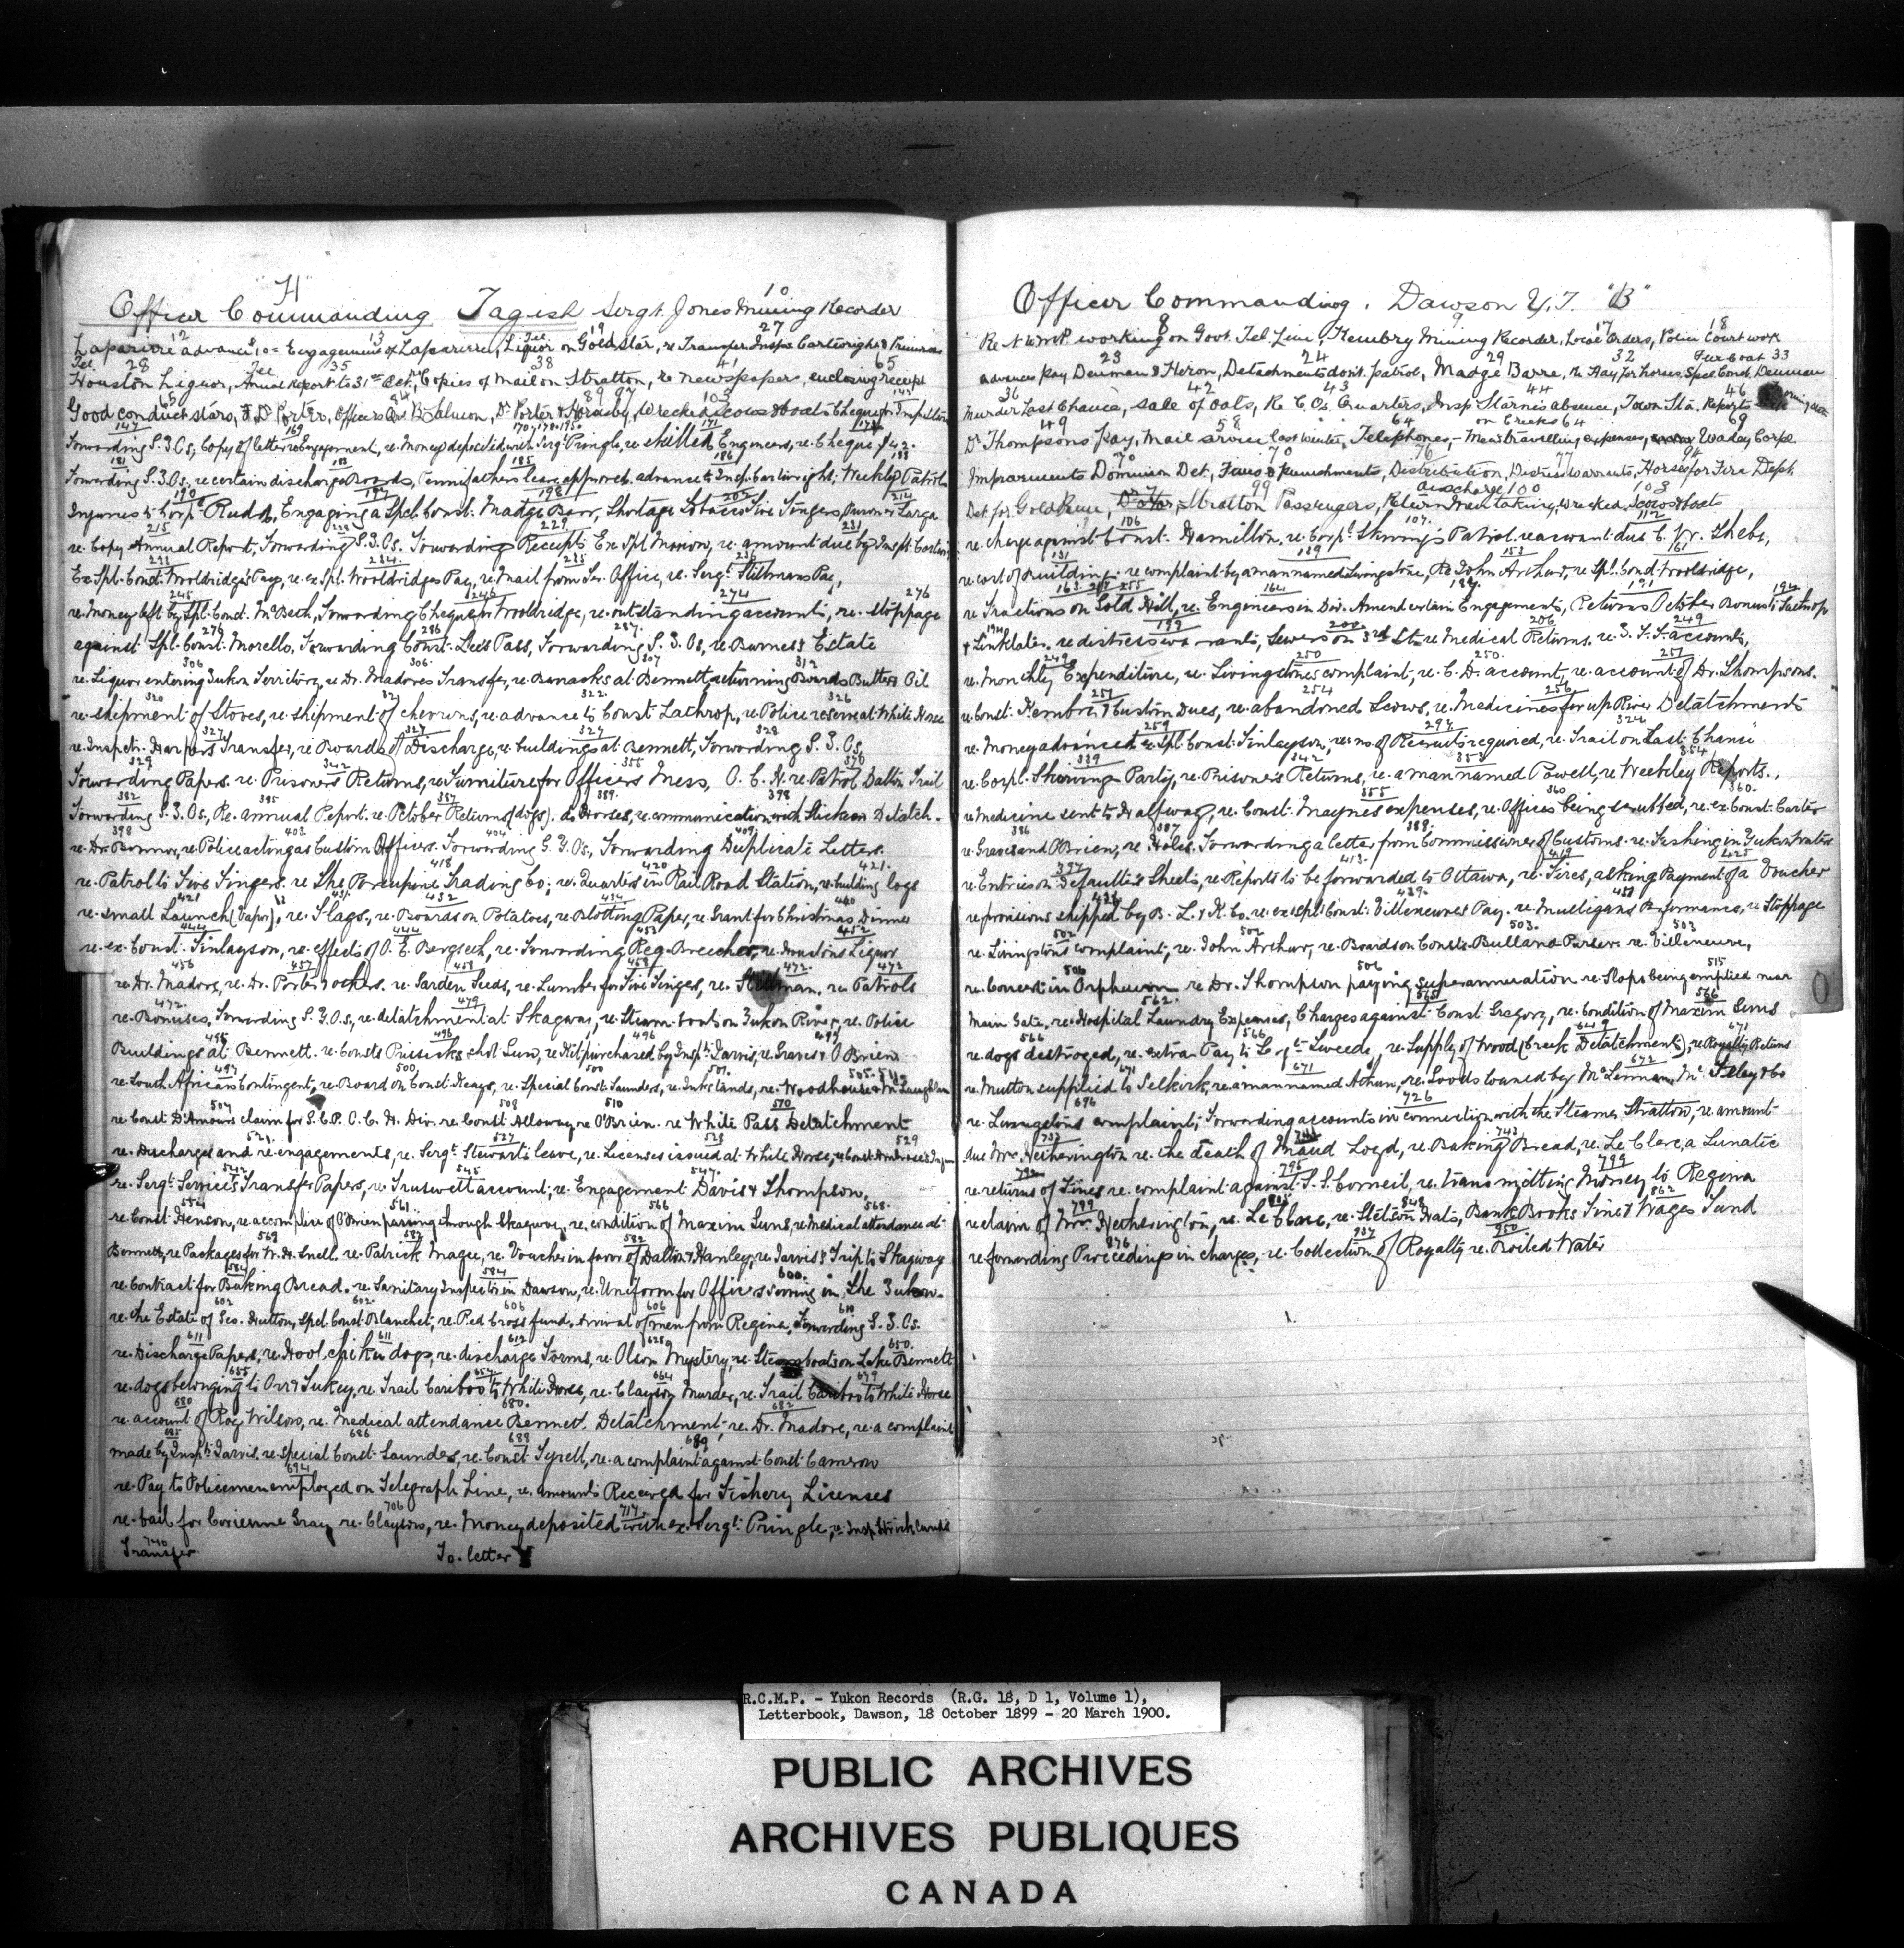 "H" 10
Officer Commanding Tagish Sergt. Jones Mining Recorder
12 13 Tel. 19 27
Laparirre advance Engagement of Laparirre, Liquor on Gold Star, re Transfer Insps Cartwright & Primrose
Tel. 28 Tel. 35 38 41 65
Houston Liquor, Annual Report to 31st Oct., Copies of Mail on Stratton, re Newspaper, enclosing receipt
65 84 89 97 103 145
Good conduct stars, Dr Porter, Officer B. Salmon, Dr. Porter & Hornsby, Wrecked Scows & boats Cheque
147 169 170, 178, 195 171 174
Forwarding G.G.Os, Copy of letter re engagement, re. Money deposited with Sergt Pringle, re skilled Engineers, re. Cheque $42.
181 183 185 186 188
Forwarding G.G.Os. re certain discharge Boards, Pennifathers leave approved, advance to Insp. Cartwright; Weekly Patrols
190 197 198 202 214
Injuries to Corpl Rudd, Engaging a Spcl. Const. Madge Barr, Shortage Tobacco Five Fingers,
215 228 229 231
re. Copy Annual Report, Forwarding G.G.Os. Forwarding Receipts Ex Spl Marion, re. amount due by Inspt.
232 234 235 236
Ex Spl. Const. Wooldridge's Pay, re. ex Spl. Wooldridges Pay, re Mail from Office, re. Sergt Stillmans Pay,
245 246 274 276
re. Money left by Spl. Const. McBeth, Forwarding Cheque Wooldridge, re. outstanding accounts, re. stoppage
279 286 287
against Spl. Const. Morello, Forwarding Const. Lees Pass, Forwarding G.G.Os, re Burness Estate
306 306 307 312
re. Liquor entering Yukon Territory, re Dr. Madores Transfer, re Barracks at Bennett, returning Boards Butter & Oil
320 321 322 326
re. shipment of Stores, re. shipment of chevrons, re. advance to Const Lathrop, re. Police reserve at White Horse
327 327 327 328
re. Inspctr. Harpers Transfer, re Boards of Discharge, re. buildings at Bennett, Forwarding G.G.Os,
329 342 355 370
Forwarding Papers. re. Prisoners Returns, re. Furniture for Officers Mess, O.C.H. re Patrol Dalton Trail
382 385 387 389 398
Forwarding G.G.Os, Re. annual Report. re. October Returns (dogs). do Horses, re. communication with Stickeen Detatch.
398 403 404 409
re. Dr. Bonnar, re. Police acting as Custom Officers. Forwarding G.G.Os, Forwarding Duplicate Letters.
418 420 421
re. Patrol to Five Fingers. re The Porcupine Trading Co; re. Quarters in Rail Road Station, re. building logs
421 431 432 434 440
re. small Launch (Vapor), re. Flags, re. Boards on Potatoes, re. Blotting Paper, re. Grant for Christmas Dinner
444 444 453 452
re. ex. Const. Finlayson, re. effects of O. E. Bergseth, re. Forwarding Reg. Breeches, re. Houstons Liquor
456 457 458 458 472 472
re. Dr. Madore, re. Dr. Porter & others. re. Garden Seeds, re. Lumber for Five Finges, re. Stillman. re Patrols
472 479
re. Bonuses, Forwarding G.G.O.s, re. detatchment at Skagway, re. Steam boat on Yukon River, re. Police
495 496 496 497
Buildings at Bennett. re. Consts Prissicks shot Gun, re. Kit purchased by Inspt. Jarvis, re. Graves & O'Brien
497 500 500 501 505. 511
re. South African Contingent, re. Board on Const. Heags, re. Special Const. Saunders, re. Ink stands, re. Woodhouse & McLaughlan
504 508 510 510
re. Const D'Amours claim for G.C.P. O.C.H. Div, re. Const. Alloway, re. O'Brien. re White Pass Detatchment
521 527 528 529
re. Discharges and re-engagements, re. Sergt Stewarts leave, re. Licenses issued at White Horse,
542 545 547
re. Sergt. Service's Transfer Papers, re. Truswell account, re. Engagement Davis & Thompson,
554 561 566 568
re. Const. Henson, re. accomplice of O'Brien passing through Skagway, re. condition of Maxim Guns, re. Medical attendance at
569 582 582
Bennett, re Packages for W. H. Snell. re. Patrick Magee, re. Voucher in favor of Dalton & Hanley, re. Jarvis' Trip to Skagway
584 584 600
re. Contract for Baking Bread. re. Sanitary Inspector in Dawson, re. Uniform for Officers serving in The Yukon.
602 602 606 606 610
re. The Estate of Geo. Hutton, Spcl. Const. Blanchet, re. Red Cross fund. Arrival of men from Regina, Forwarding G.G.Os.
611 611 612 628 650
re. Discharge Papers, re. dogs, re. discharge Forms, re. Olson Mystery, re. Steamboats on Lake Bennett
655 654 664 679
re. dogs belonging to Orr & Tukey, re. Trail Cariboo to White Horse, re. Clayson Murder, re. Trail Cariboo to White Horse
680 680 682
re. account of Roy Wilson, re. Medical attendance Bennett. Detatchment, re. Dr. Madore, re. a complaint
685 686 688 689
made by Inspt. Jarvis. re. special Const. Saunders, re. Const. Tyrell, re. a complaint against Const. Cameron
694
re. Pay to Policemen employed on Telegraph Line, re. amounts Received for Fishery Licenses
706 717
re. bail for Corienne Gray re. Claysons, re. Money deposited with ex. Sergt. Pringle, re. Insp. Stricklands
740
Transfer To. letter Y
Officer Commanding. Dawson Y.T. "B"
8 9 17 18
Re N.W.M.P. working on Govt. Tel. Line, Hembry Mining Recorder, Local Orders, Police Court work
23 24 29 32 Fur Coat 33
Advances pay Denman & Heron, Detachments dont patrol, Madge Barre, re Hay for horses, Spcl Const. Denman
36 42 43 44 46
Murder Last Chance, Sale of oats, Re C.O's. Quarters, Insp Starnes absence, Town Sta. Reports
49 58 64 on Creeks 64 69
Dr. Thompsons pay, Mail service last winter, Telephones, Men's travelling expenses, Waday Corpl.
70 70 76 77 94
Improvements Dominion Det., Fines & punishments, Distribution, Distress warrants, Horses for Fire Dept.
99 discharge 100 103
Det. for Gold Run, Stratton Passengers, Return Trail taking, Wrecked Scows & boats
106 107 112
re. charge against Const. Hamilton. re. Corpl. Skirving's Patrol. re. amount due C. W. Thebo,
131 139 153 161
re. cost of Building. re complaint by a man named Livingstone, Re John Arthur, re Spl. Const Wooldridge,
163 164 184 191 194
re Fractions on Gold Hill, re. Engineers in Div. Amend certain Engagements, Returns October Bonus to Lathrop
194 199 200 206 249
& Linklater. re distress warrants, Sewers on 3rd St. re Medical Returns. re. accounts,
249 250 250 251
re. Monthly Expenditure, re. Livingstones complaint, re. C. D. account, re. account of Dr. Thompsons.
251 254 256
re. Const. Hembre & Custom Dues, re. abandoned Scows, re. Medicines for up River Detatchments
259 297 324
re. Money advanced ex. Spl. Const. Finlayson, re. no. of Recruits required, re. Trail on Last Chance
339 342 353 354
re. Corpl. Skirving Party, re. Prisoners Returns, re. a man named Powell, re Weekley Reports.,
355 360 360
re Medicine sent to Halfway, re. Const. Maynes expenses, re. Offices being scrubbed, re. ex. Const. Carter
386 387 388
re. Graves and O'Brien, re Holes. Forwarding a letter from Commissioner of Customs. re. Fishing in Yukon Waters
397 413 419 425
re. Entries on Defaulters Sheets, re. Reports to be forwarded to Ottawa, re. Fires, asking Payment of a Voucher
436 439 451
re. provisions shipped by B. L. & K. Co. re. ex Spl. Const. Villeneuves Pay. re. Mulligans Performance, re Stoppage
502 502 503 503
re. Livingstons complaint, re. John Arthur, re. Boards on Consts. Bull and Purser. re. Villeneuve,
506 506 515
re. Concert in Orpheum re Dr. Thompson paying superannuation re. Slops being emptied near
562 565 566
Main Gate, re. Hospital Laundry Expenses, Charges against Const. Gregory, re. Condition of Maxim Guns
566 566 649 671
re. dogs destroyed, re. extra Pay to Sergt. Tweedy, re. Supply of Wood (Creek Detatchments), re Royalty Returns
671 671 672
re. Mutton supplied to Selkirk, re a man named Athun, re. Goods loaned by McLennan, McFeley & Co
696 726
re. Livingstons complaint, Forwarding accounts in connection with the Steamer Stratton, re. amount
732 741 743
due Mrs. Hetherington re. the death of Maud Loyd, re. Baking Bread, re. Le Clare, a Lunatic
792 796 799
re. returns of Fines re. complaint against S.S. Corneil, re. transmitting Money to Regina
799 805 848 862
re claim of Mrs. Hetherington, re. Le Clare, re. Stetson Hats, Bank Books Fine & Wages Fund
876 937 950
re. forwarding Proceedings in charges, re. Collection of Royalty re. Boiled Water
R.C.M.P. - Yukon Records (R.G. 18, D 1, Volume 1),
Letterbook, Dawson, 18 October 1899 - 20 March 1900.
PUBLIC ARCHIVES
ARCHIVES PUBLIQUES
CANADA